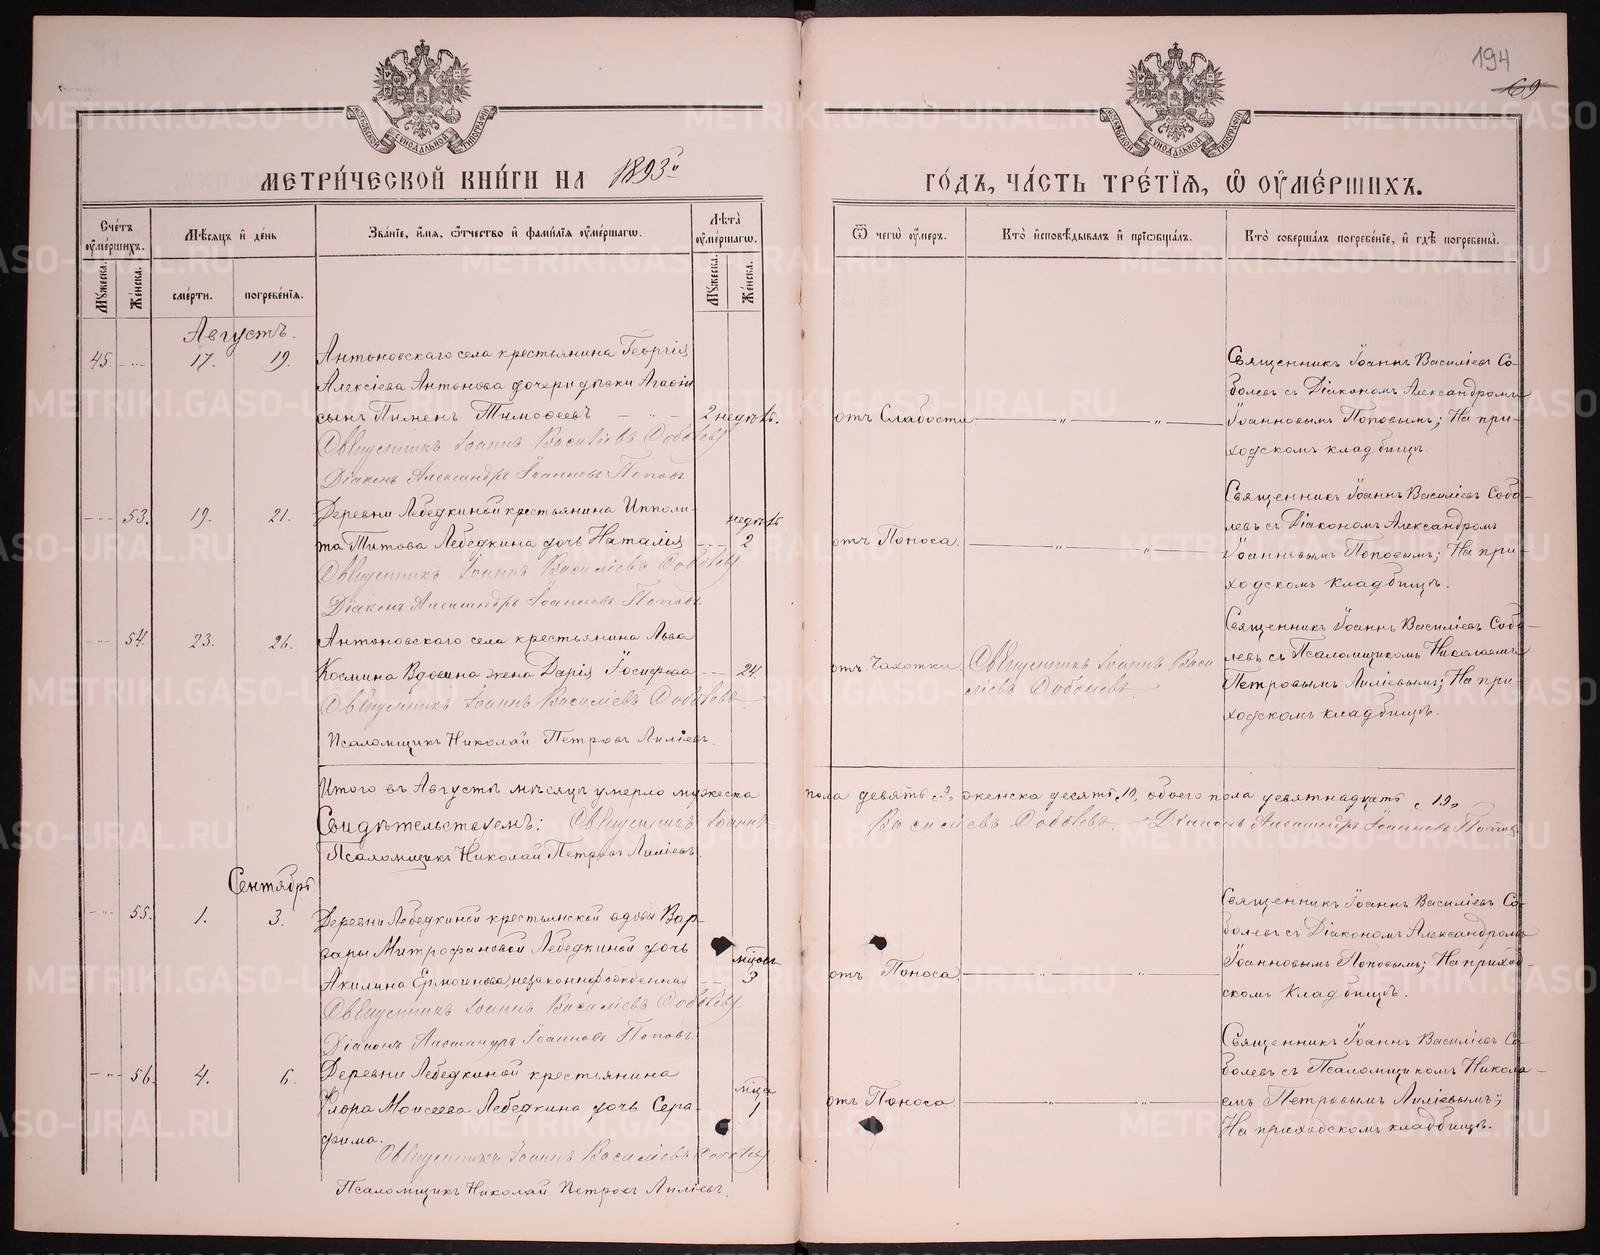 194
69
МОСКОВСКОЙ СѴНОДАЛЬНОЙ ТИПОГРАФІИ
МОСКОВСКОЙ СѴНОДАЛЬНОЙ ТИПОГРАФІИ
МЕТРИ́ЧЕСКОЙ КНИ́ГИ НА 1893й
ГО́ДЪ, ЧА́СТЬ ТРЕ́ТІѦ, Ѡ ОУМЕ́РШИХЪ.
Сче́тъ оуме́ршихъ.
Мꙋжеска.
Же́нска.
Мѣсѧцъ и҆ де́нь
сме́рти.
погребе́нїѧ.
Зва́нїе, и҆́мѧ, ѻ҆́тчество и҆ фами́лїѧ оуме́ршагѡ.
Лѣ́та оуме́ршагѡ.
Мꙋжеска.
Же́нска.
Ѿ чегѡ̀ оу́меръ.
Кто̀ и҆сповѣ́дывалъ и҆ прїѡбща́лъ.
Кто̀ соверша́лъ погребе́нїе, и҆ гдѣ̀ погребены̀.
Августъ.
45. 17. 19. Антоновскаго села крестьянина Георгія
Алексіева Антонова дочери дѣвки Агафіи
сынъ Пименъ Тимофеевъ 2 недѣль.
Священникъ Іоаннъ Василіевъ Соболевъ
Діаконъ Александръ Іоанновъ Поповъ
отъ Слабости
Священникъ Іоаннъ Василіевъ Со-
болевъ съ Діакономъ Александромъ
Іоанновымъ Поповымъ; На при-
ходскомъ кладбищѣ.
53. 19. 21. Деревни Лебедкиной крестьянина Ипполи-
та Титова Лебедкина дочь Наталія недѣль 2
Священникъ Іоаннъ Василіевъ Соболевъ
Діаконъ Александръ Іоанновъ Поповъ.
отъ Поноса.
Священникъ Іоаннъ Василіевъ Собо-
левъ съ Діакономъ Александромъ
Іоанновымъ Поповымъ; На при-
ходскомъ кладбищѣ.
54. 23. 26. Антоновскаго села крестьянина Льва
Космина Вдовина жена Дарія Іосифова 24.
Священникъ Іоаннъ Василіевъ Соболевъ
Псаломщикъ Николай Петровъ Лиліевъ.
отъ Чахотки.
Священникъ Іоаннъ Васи
ліевъ Соболевъ
Священникъ Іоаннъ Василіевъ Собо-
левъ съ Псаломщикомъ Николаемъ
Петровымъ Лиліевымъ; На при-
ходскомъ кладбищѣ.
Итого въ Августѣ мѣсяцѣ умерло мужеска пола девять 9, женска десять 10, обоего пола девятнадцать 19.
Свидѣтельствуемъ: Священникъ Іоаннъ Василіевъ Соболевъ. Діаконъ Александръ Іоанновъ Поповъ
Псаломщикъ Николай Петровъ Лиліевъ.
Сентябрь
55. 1. 3. Деревни Лебедкиной крестьянской вдовы Вар-
вары Митрофановой Лебедкиной дочь
Акилина Ермогенова, незаконнорожденная мѣсяцовъ 3
Священникъ Іоаннъ Василіевъ Соболевъ
Діаконъ Александръ Іоанновъ Поповъ.
отъ Поноса
Священникъ Іоаннъ Василіевъ Со-
болевъ съ Діакономъ Александромъ
Іоанновымъ Поповымъ; На приход-
скомъ кладбищѣ.
56. 4. 6. Деревни Лебедкиной крестьянина
Флора Моисеева Лебедкина дочь Сера-
фима. мѣсяца 1
Священникъ Іоаннъ Василіевъ Соболевъ
Псаломщикъ Николай Петровъ Лиліевъ.
отъ Поноса
Священникъ Іоаннъ Василіевъ Со-
болевъ съ Псаломщикомъ Никола-
емъ Петровымъ Лиліевымъ;
На приходскомъ кладбищѣ.
METRIKI.GASO-URAL.RU